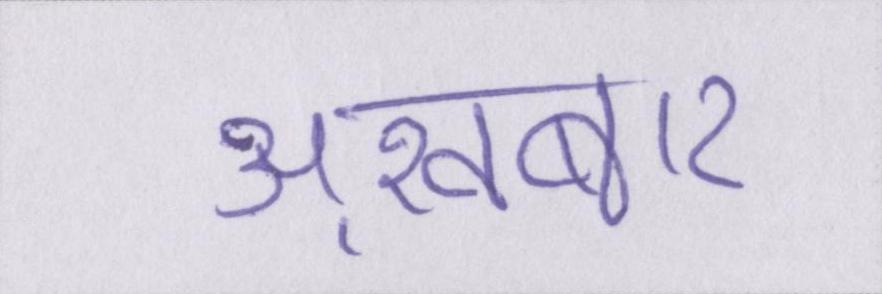 अख़बार